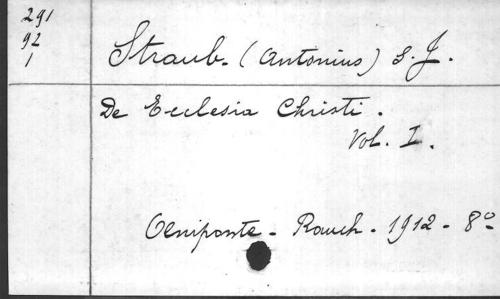 291
92
1
Straub. (Antonius) S. J.
De Ecclesia Christi.
Vol. I.
Oeniponte - Rauch - 1912 - 8º